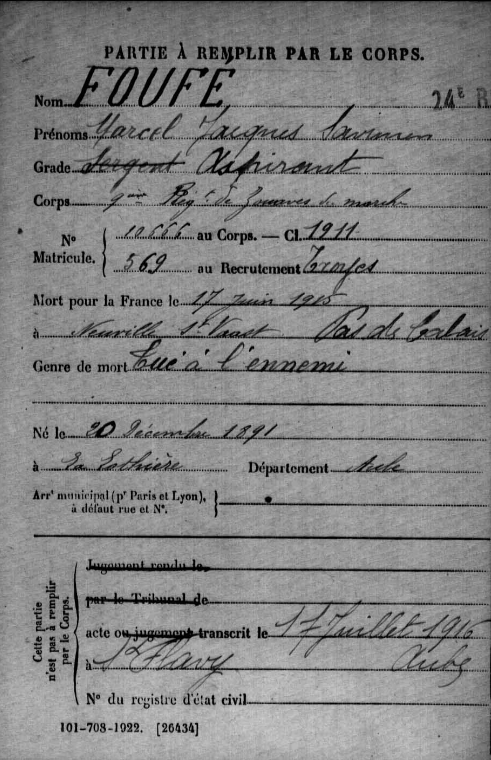 PARTIE À REMPLIR PAR LE CORPS.
Nom FOUFÉ
24E R
Prénoms Marcel Jacques
Grade Sergent Aspirant
Corps 9me Régt de Zouaves de marche
No Matricule. { 10666 au Corps. — Cl. 1911
569 au Recrutement Troyes
Mort pour la France le 17 juin 1915
à Neuville St Vaast Pas de Calais
Genre de mort Tué à l'ennemi
Né le 20 Décembre 1891
à La Rothière Département Aube
Arrt municipal (pr Paris et Lyon), à défaut rue et No. }
Cette partie n'est pas à remplir par le Corps.
Jugement rendu le
par le Tribunal de
acte ou jugement transcrit le 17 Juillet 1915
à St Flavy Aube
No du registre d'état civil
101-708-1922. [26434]